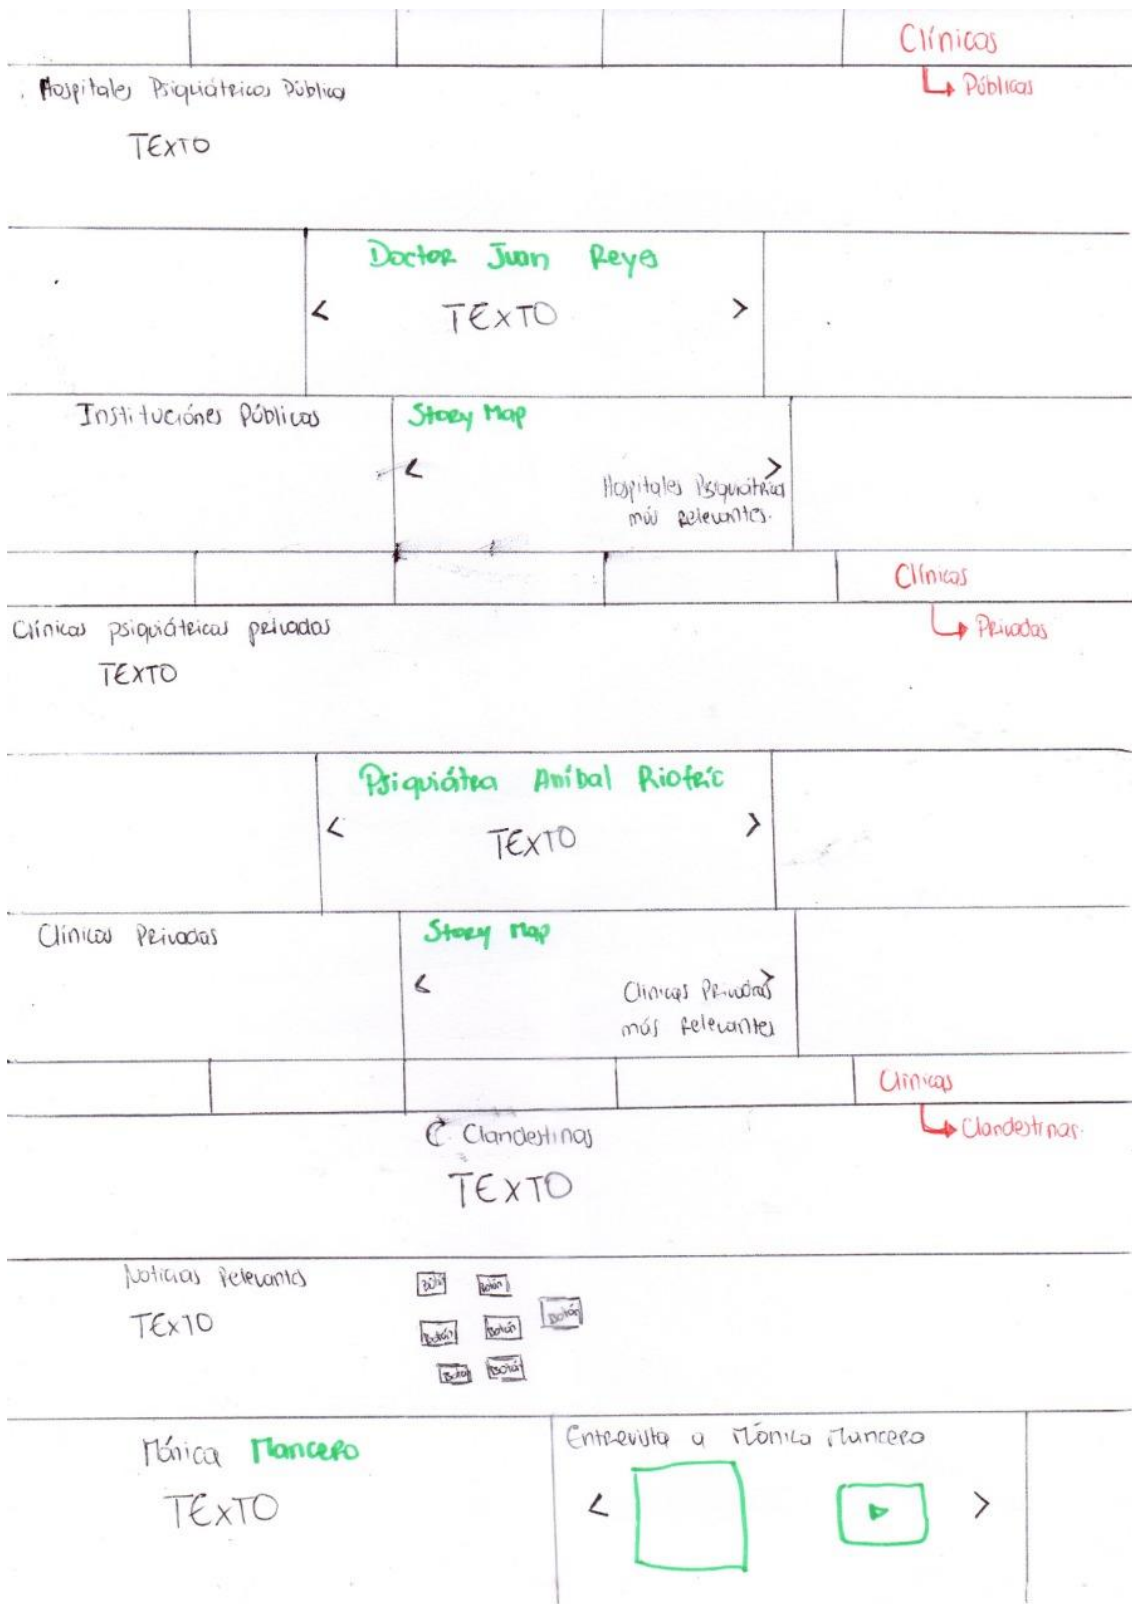 Clínicas
Públicas
Hospitales Psiquiátricos Públicos
TEXTO
Doctor Juan Reyes
< TEXTO >
Instituciónes Públicas
Story Map
< >
Hospitales Psiquiátricos
más relevantes.
Clínicas
Privadas
Clínicas psiquiátricas privadas
TEXTO
Psiquiátra Aníbal Riofric
< TEXTO >
Clínicas Privadas
Story Map
< >
Clínicas Privadas
más relevantes
Clínicas
Clandestinas.
C. Clandestinas
TEXTO
Noticias Relevantes
TEXTO
Botón Botón
Botón
Botón Botón
Botón Botón
Mónica Mancero
TEXTO
Entrevista a Mónica Mancero
< >